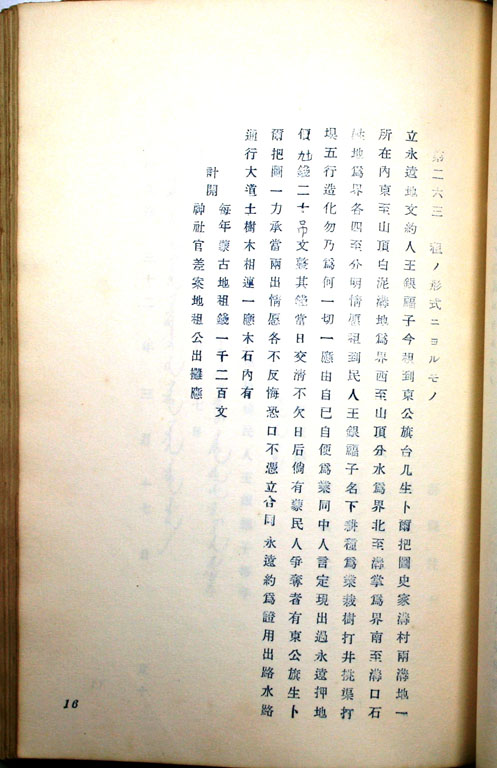 第二六三 租ノ形式ニヨルモノ
立永遠地文約人王銀福子今租到東公旗台几生卜爾把圖史家溝村兩溝地一
所在內東至山頂白泥溝地爲界西至山頂分水爲界北至溝掌爲界南至溝口石
地爲界各四至分明情愿租到民人王銀福子名下耕種爲業栽樹打井挑渠打
壩五行造化勿乃爲何一切一應由自已自便爲業同中人言定現出過永遠押地
錢二十吊文整其錢當日交淸不欠日后倘有蒙民人爭奪者有東公旗生卜
爾把圖一力承當兩出情愿各不反悔恐口不憑立合同永遠約爲證用出路水路
通行大道土樹木相連一應木石內有
計開
每年蒙古地租錢一千二百文
神社官差案地租公出攤應
16